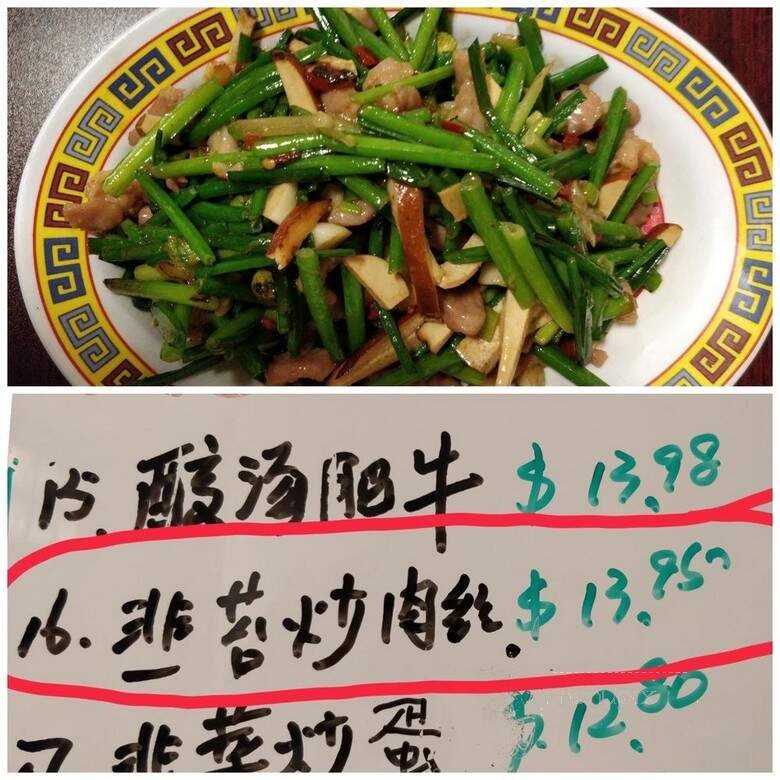 15. 酸汤肥牛 $13.98
16. 韭苔炒肉丝. $13.95
17. 韭菜炒蛋 $12.80